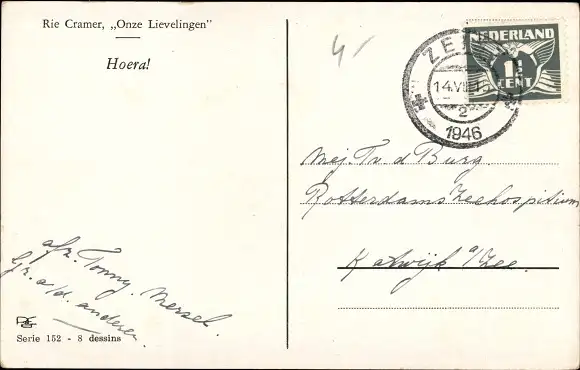 Rie Cramer, „Onze Lievelingen"
Hoera!
4/-
NEDERLAND
1½
CENT
14.VII
2
1946
Mej. Tr. v.d Burg.
Rotterdams Zeehospitium
Katwijk a/Zee.
afz. Tonny. Mersel.
Gr. a/d. anderen.
Serie 152 - 8 dessins